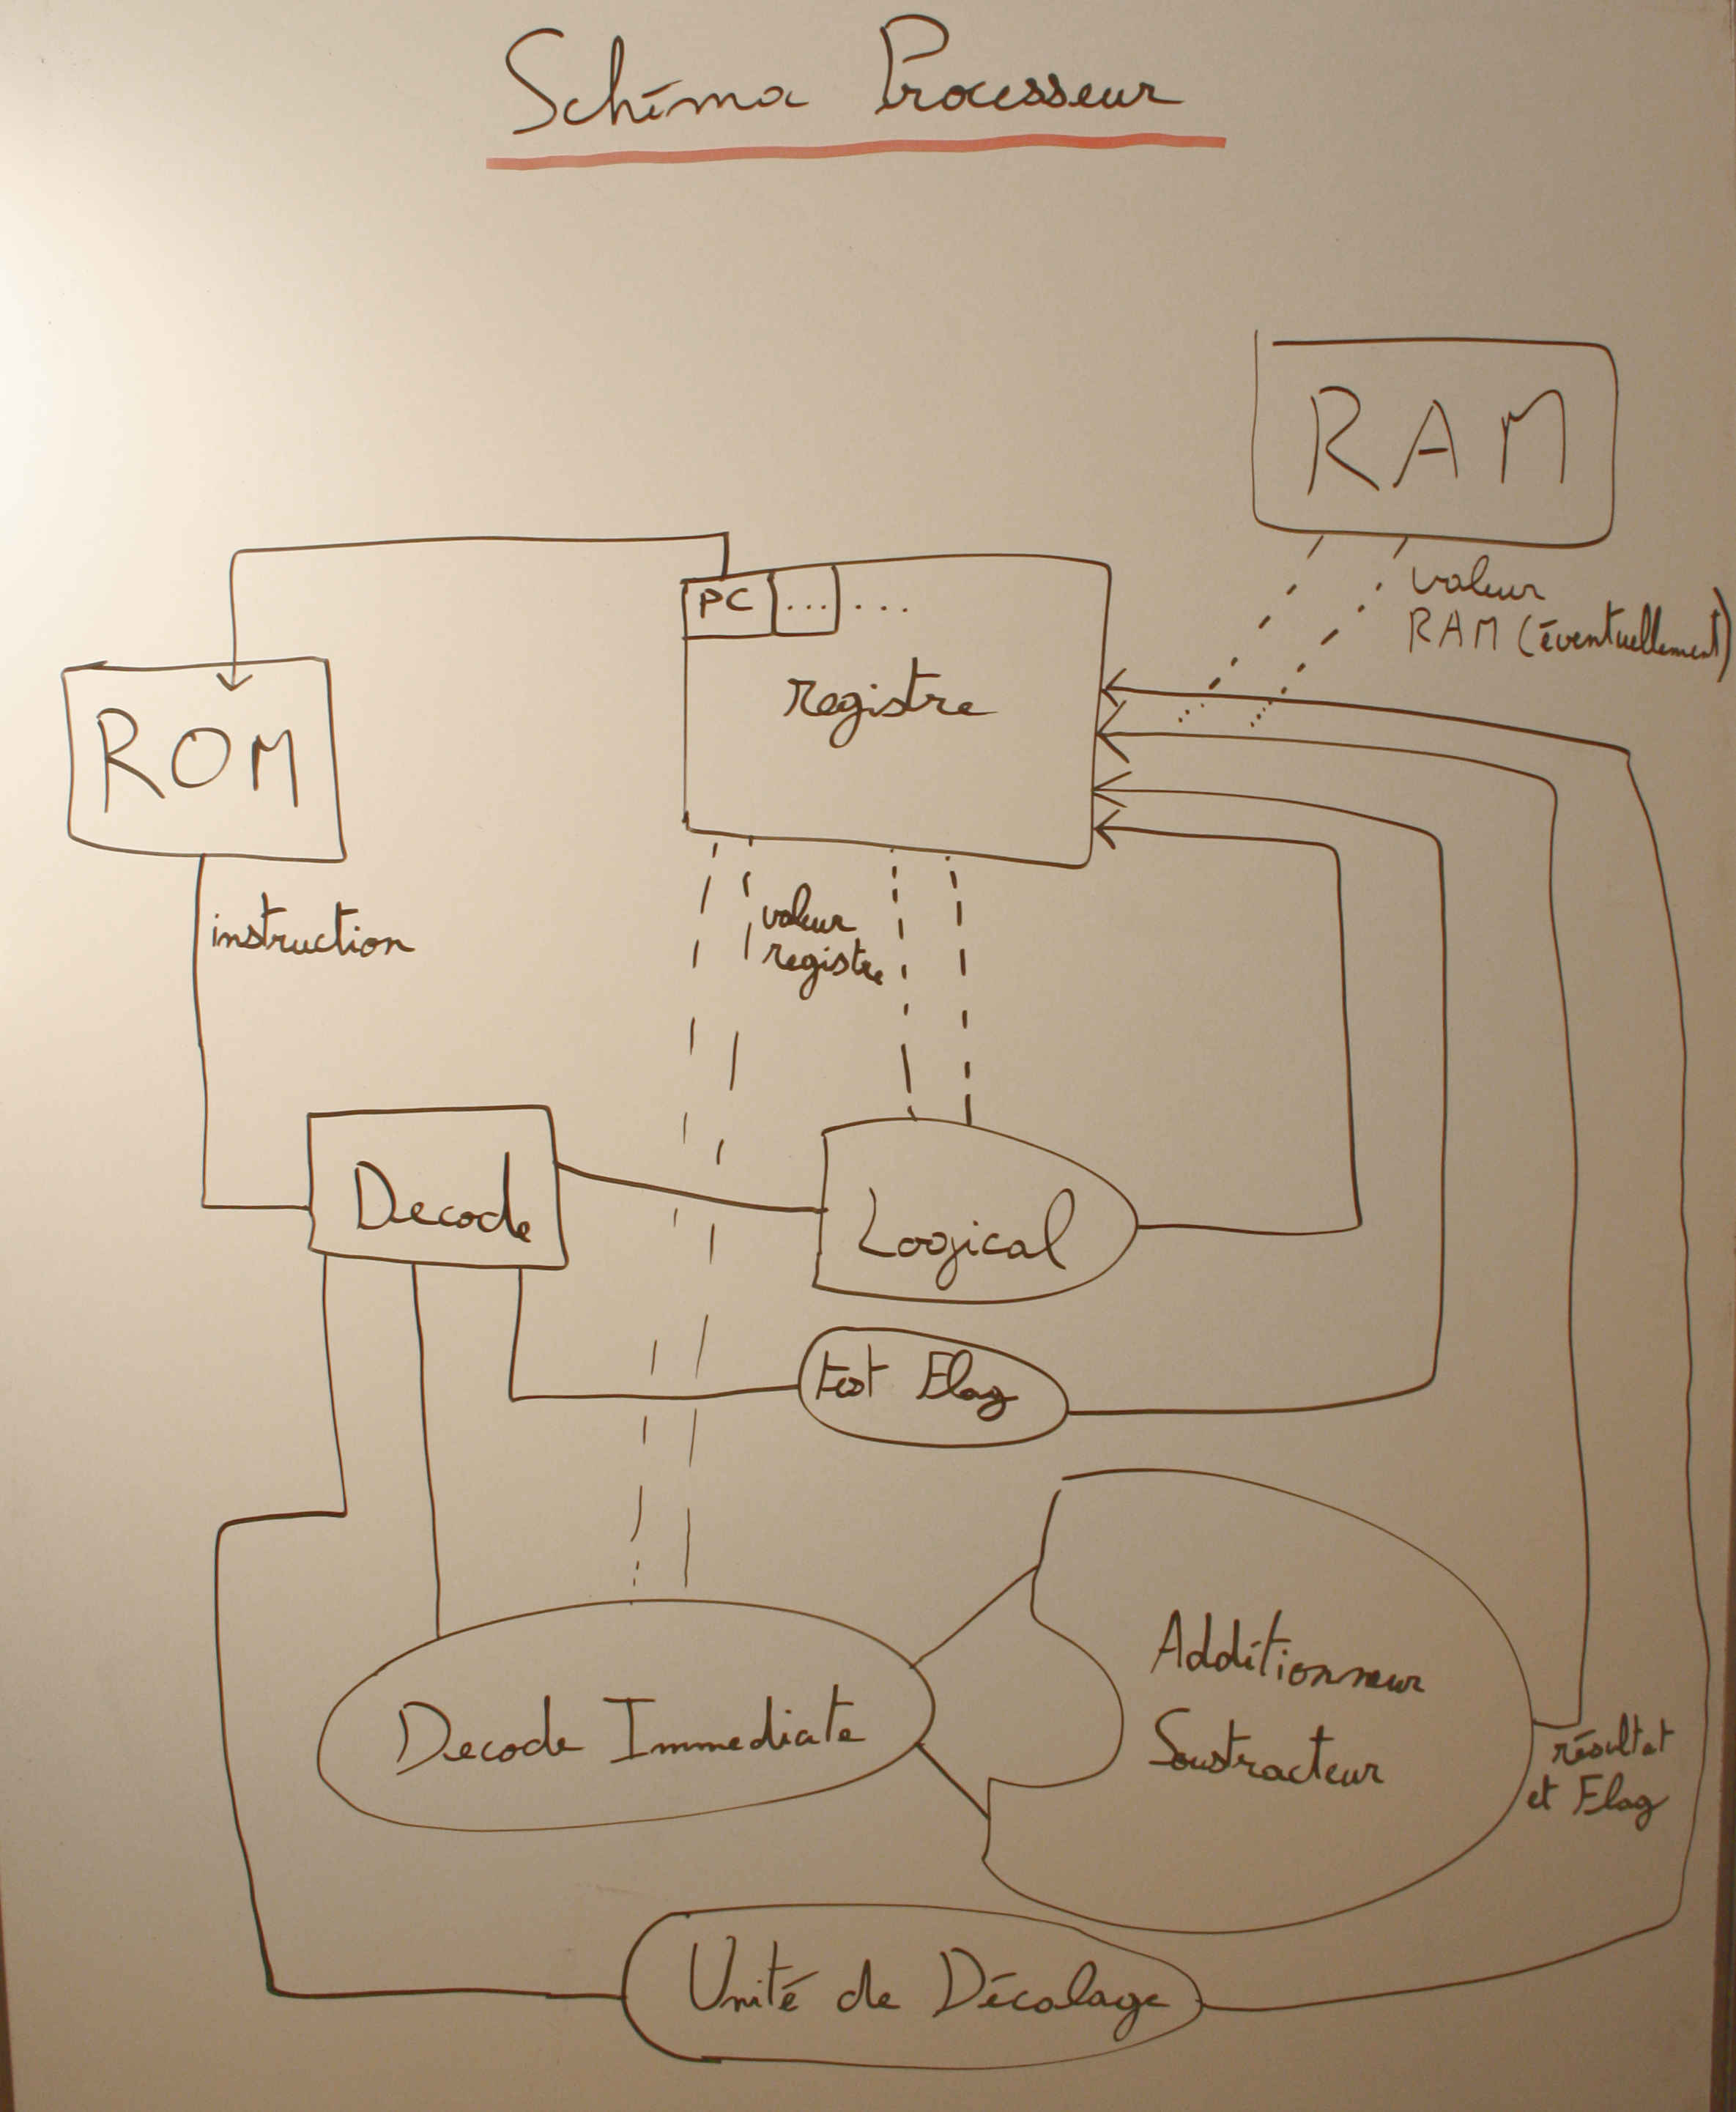 Schéma Processeur
RAM
valeur
RAM (éventuellement)
PC ... ...
registre
ROM
instruction
valeur
registre
Decode
Logical
test Flag
Additionneur
Soustracteur
Decode Immediate
résultat
et Flag
Unité de Décalage